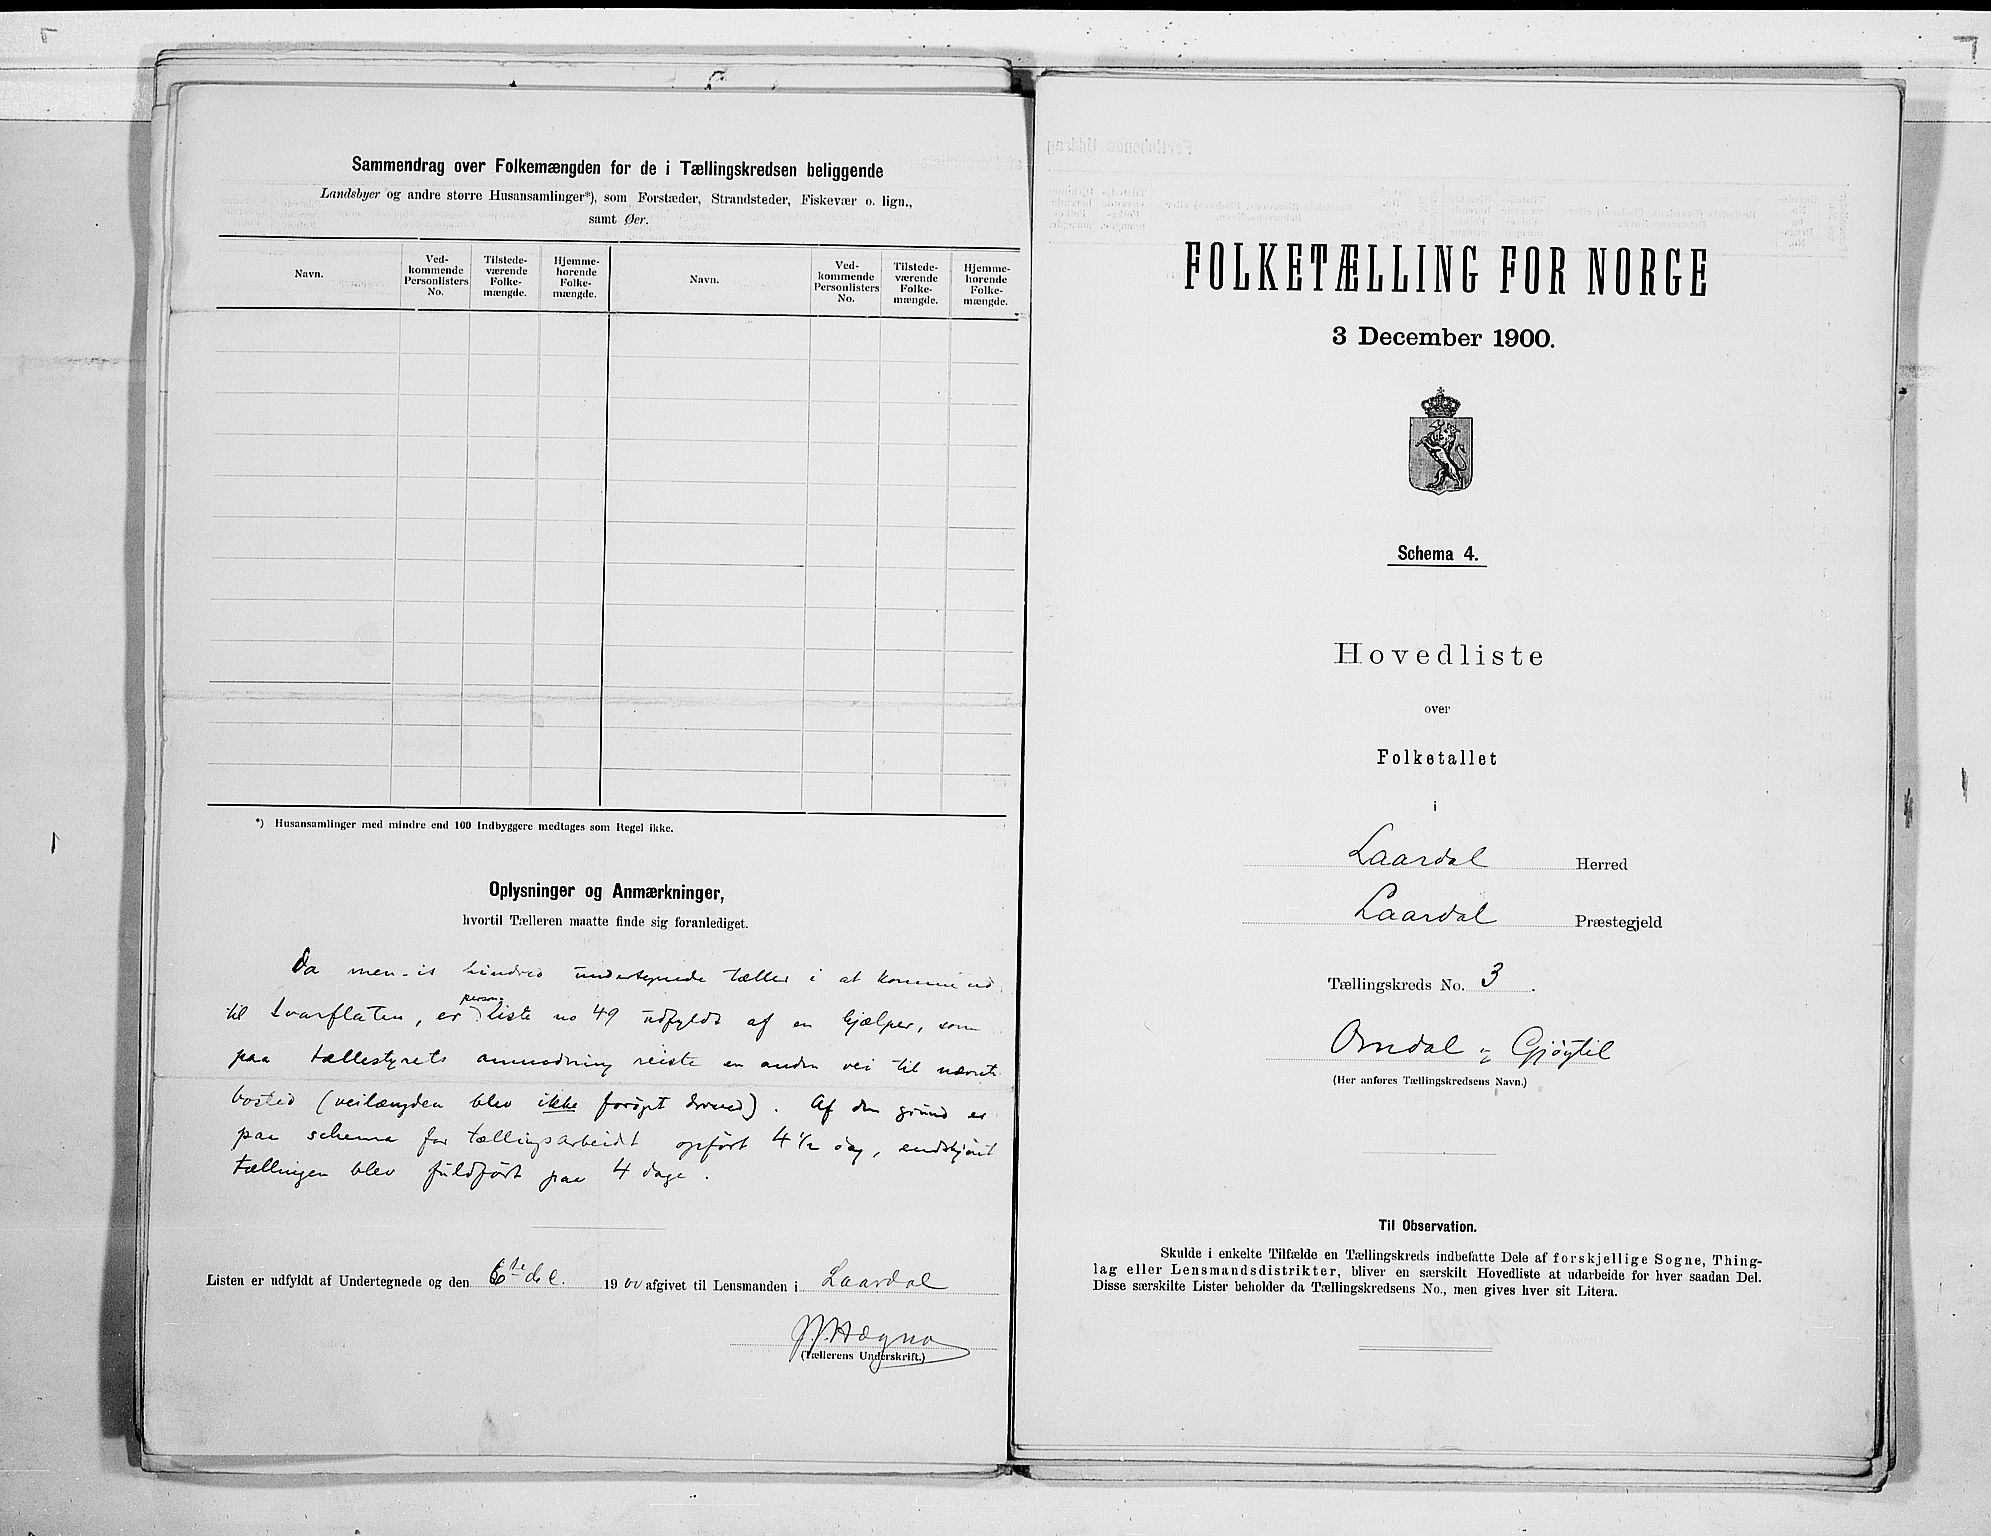 Sammendrag over Folkemængden for de i Tællingskredsen beliggende
Landsbyer og andre større Husansamlinger*), som Forstæder, Strandsteder, Fiskevær o. lign.,
samt Øer.
Navn.
Ved-
kommende
Personlisters
No.
Tilstede-
værende
Folke-
mængde.
Hjemme-
hørende
Folke-
mængde.
Navn.
Ved-
kommende
Personlisters
No.
Tilstede-
værende
Folke-
mængde.
Hjemme-
hørende
Folke-
mængde.
*) Husansamlinger med mindre end 100 Indbyggere medtages som Regel ikke.
Oplysninger og Anmærkninger,
hvortil Tælleren maatte finde sig foranlediget.
Da men-is hindred undertegnede tæller i at komme ud
til Svarflaten, er person-liste no 49 udfyldt af en hjælper, som
paa tællestyrets anmodning reiste en anden vei til nævnte
bosted (veilængden blev ikke forøget derved). Af den grund er
paa schema for tællingsarbeidet opført 4 1/2 dag, endskjønt
tællingen blev fuldført paa 4 dage.
Listen er udfyldt af Undertegnede og den 6te dec. 1900 afgivet til Lensmanden i Laardal
(Tællerens Underskrift.)
FOLKETÆLLING FOR NORGE
3 December 1900.
Schema 4.
Hovedliste
over
Folketallet
i
Laardal Herred
Laardal Præstegjeld
Tællingskreds No. 3.
Omdal og Gjøytil
(Her anføres Tællingskredsens Navn.)
Til Observation.
Skulde i enkelte Tilfælde en Tællingskreds indbefatte Dele af forskjellige Sogne, Thing-
lag eller Lensmandsdistrikter, bliver en særskilt Hovedliste at udarbeide for hver saadan Del.
Disse særskilte Lister beholder da Tællingskredsens No., men gives hver sit Litera.